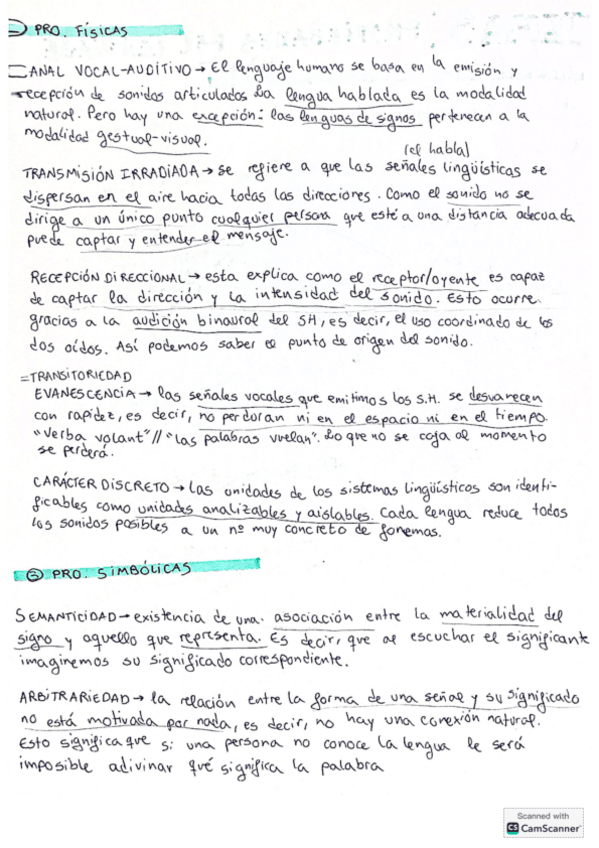 PRO. FÍSICAS
CANAL VOCAL-AUDITIVO → El lenguaje humano se basa en la emisión y
recepción de sonidos articulados. La lengua hablada es la modalidad
natural. Pero hay una excepción: las lenguas de signos pertenecen a la
modalidad gestual-visual.
(el habla)
TRANSMISIÓN IRRADIADA → se refiere a que las señales lingüísticas se
dispersan en el aire hacia todas las direcciones. Como el sonido no se
dirige a un único punto cualquier persona que esté a una distancia adecuada
puede captar y entender el mensaje.
RECEPCIÓN DIRECCIONAL → esta explica como el receptor/oyente es capaz
de captar la dirección y la intensidad del sonido. Esto ocurre
gracias a la audición binaural del SH, es decir, el uso coordinado de los
dos oídos. Así podemos saber el punto de origen del sonido.
=TRANSITORIEDAD
EVANESCENCIA → las señales vocales que emitimos los S.H. se desvanecen
con rapidez, es decir, no perduran ni en el espacio ni en el tiempo.
"Verba volant" // "las palabras vuelan". Lo que no se coja al momento
se perderá.
CARÁCTER DISCRETO → las unidades de los sistemas lingüísticos son identi-
ficables como unidades analizables y aislables. Cada lengua reduce todos
los sonidos posibles a un nº muy concreto de fonemas.
② PRO. SIMBÓLICAS
SEMANTICIDAD → existencia de una asociación entre la materialidad del
signo y aquello que representa. Es decir, que al escuchar el significante
imaginemos su significado correspondiente.
ARBITRARIEDAD → la relación entre la forma de una señal y su significado
no está motivada por nada, es decir, no hay una conexión natural.
Esto significa que si una persona no conoce la lengua le será
imposible adivinar qué significa la palabra
Scanned with
CS CamScanner